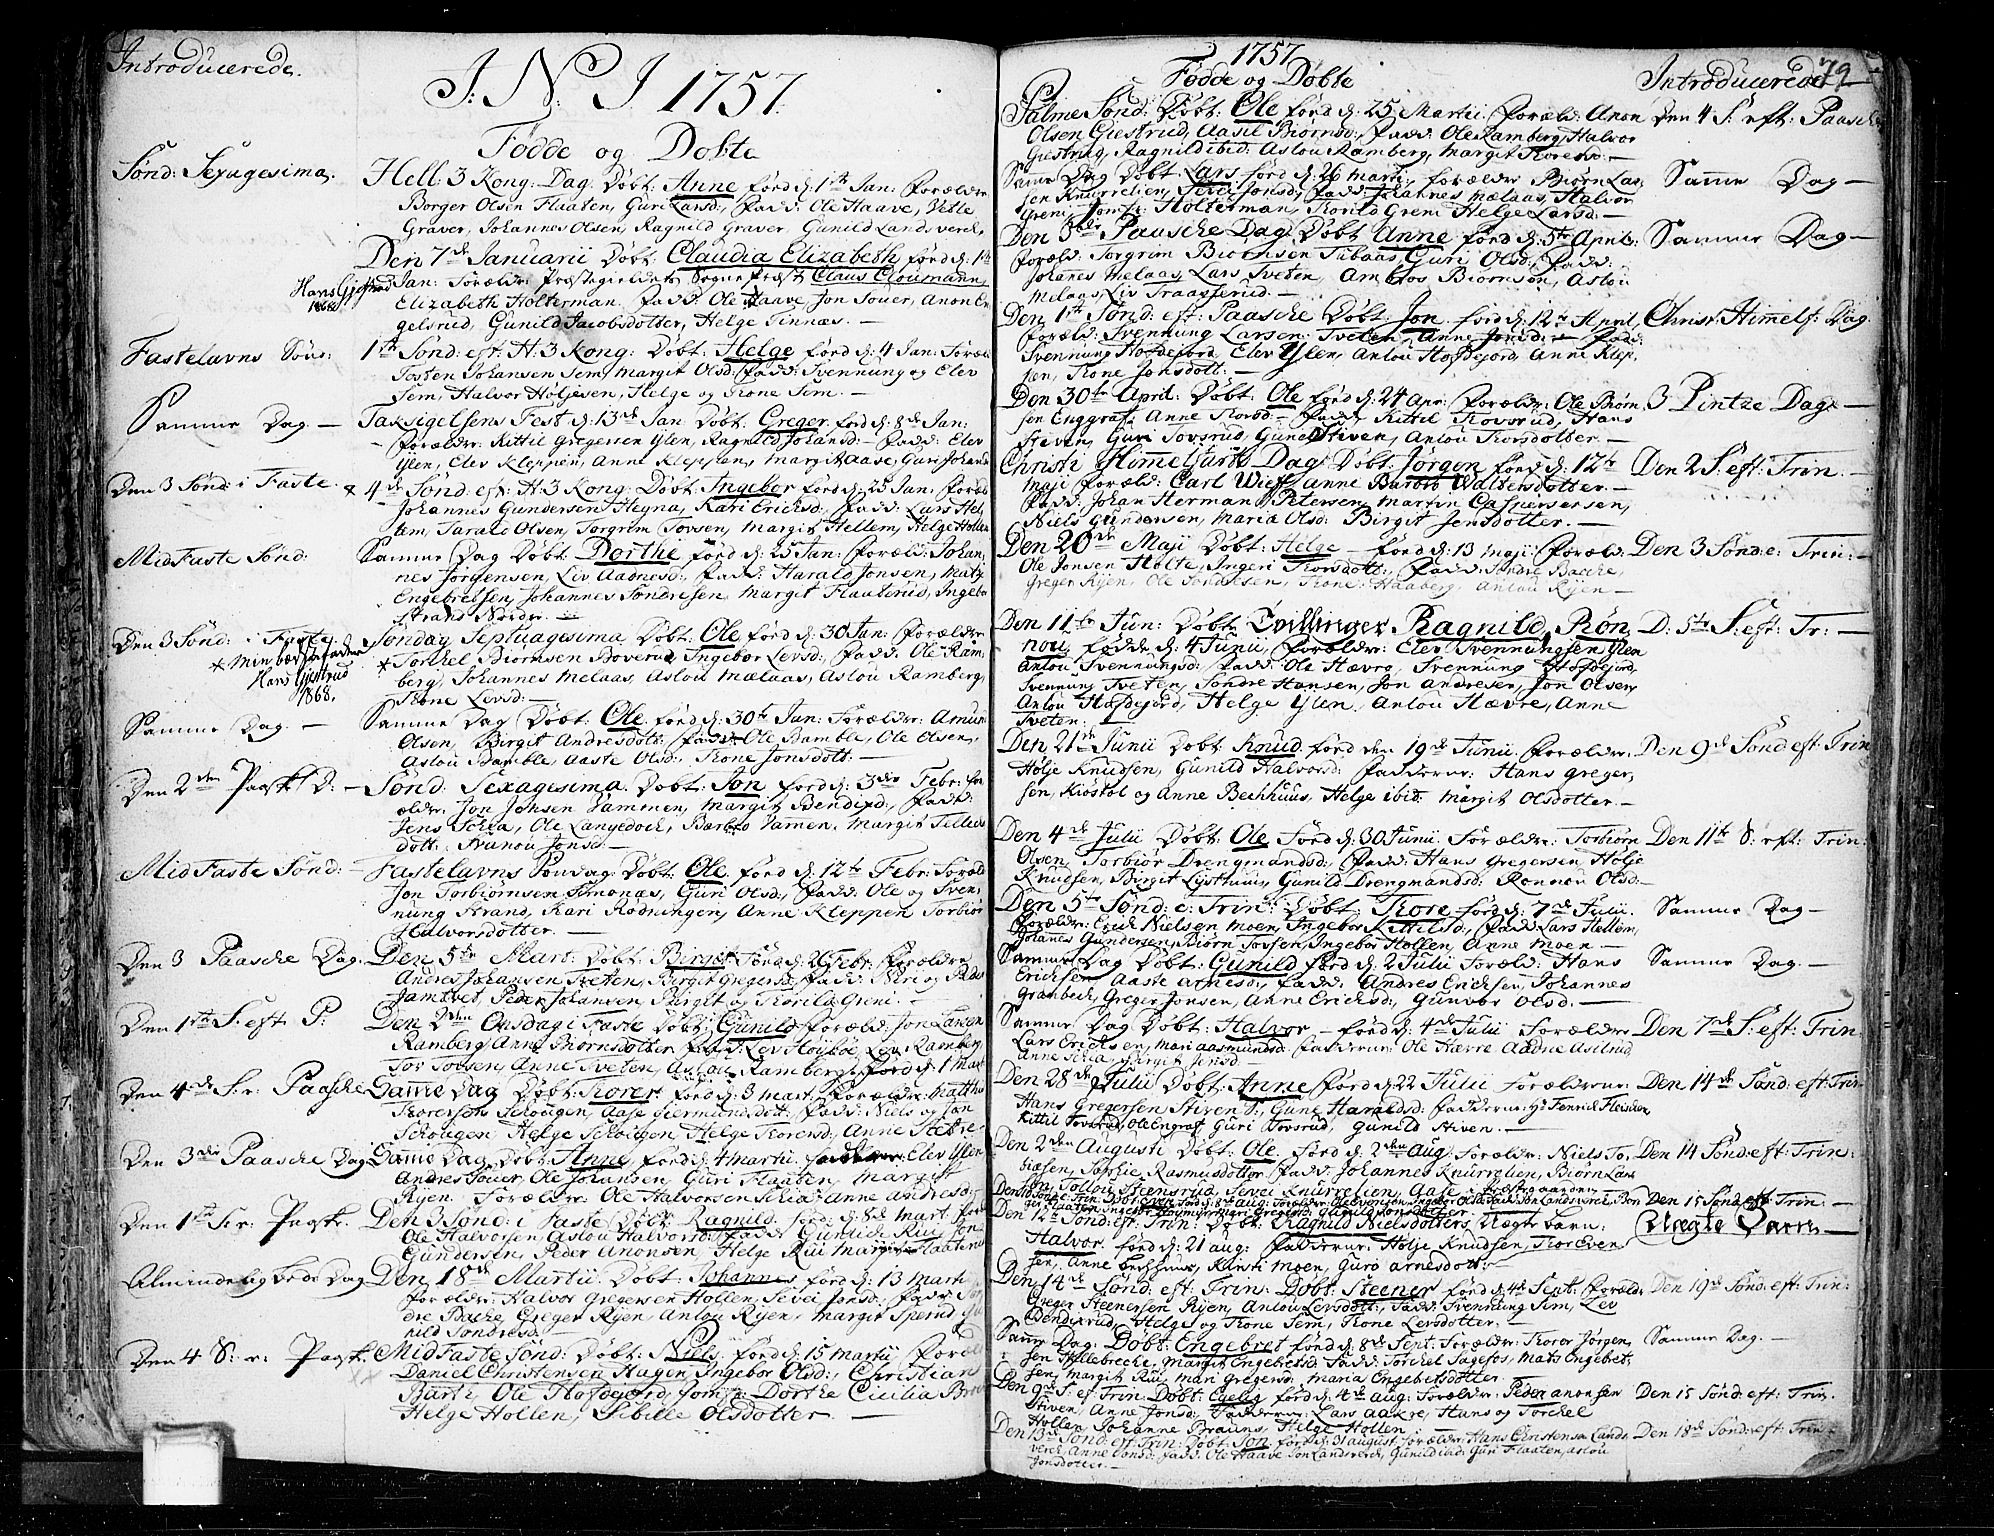 Introducerede.
J. N. J. 1757.
Fødde og Døbte
Sønd: Sexagesima.
Hell: 3 Kong: Dag: Døbt: Anne førd d: 1te Jan: Forældre
Borger Olsen Flaaten, Guri Larsd:, Fadd: Ole Haave, Vetle
Graver, Johannes Olsen, Ragnild Graver, Gunild Landsverck.
Den 7de Januarii Døbt: Claudia Elizabeth førd d: 1te
Jan: Forældr: Præstegieldets Sogne Præst Claus Cloumann,
Elizabeth Holterman. Fadd: Ole Haave, Jon Souer, Anon En-
gelsrud, Gunild Jacobsdotter, Helge Tinnæs. —
Hans Gjestrud
1868
Fastelavns Sønd:
1te Sønd: eft: H. 3 Kong: Døbt: Helge førd d: 4 Jan: Foræld
Tosten Johansen Sem, Margit Olsd: Fadd: Svennung og Elev
Sem, Halvor Høljesen, Helge og Thone Sem.
Samme Dag. —
Taksigelsens Fest d: 13de Jan: Døbt: Greger førd d: 8de Jan:
Forældr: Kittil Gregersen Ylen, Ragnild Johansd: — Fadd: Elev
Ylen, Elev Kleppen, Anne Kleppen, Margit Aase, Guri Johansd
Den 3 Sønd: i Faste.
4de Sønd: eft: H. 3 Kong: Døbt: Ingebor førd d: 25 Jan: Foræld
Johannes Gundersen Hegna, Kari Ericksd:, Fadd: Lars Hel-
lem, Tarald Olsen, Torgrim Tovsen, Margit Hellem, Helge Hollen
MidFaste Sønd:
Samme Dag Døbt: Dorthe førd d: 25 Jan: Foræld: Johan-
nes Jørgensen, Liv Aadnesd:, Fadd: Harald Jonsen, Matz
Engebretsen, Johannes Søndresen, Margit Flaaterud, Ingebor
Strand Nordre. —
Den 3 Sønd: i Faste.
* Min bedstefader
Hans Gjestrud
1868.
Sønday Septuagesima Døbt: Ole førd d: 30 Jan: Forældre
* Torkel Biørnsen Boverud, Ingebor Levsd:, Fadd: Ole Ram-
berg, Johannes Melaas, Aslou Mælaas, Aslou Ramberg,
Thone Levsd: —
Samme Dag. —
Samme Dag Døbt: Ole førd d: 30te Jan: Forældre: Amund
Olsen, Birgit Andresdott: Fadd: Ole Bamble, Ole Olsen,
Aslou Bamble, Aaste Olsd:, Thone Jonsdott: —
Den 2den Paask D: —
Sønd: Sexagesima. Døbt: Jon førd d: 3die Febr: For-
ældr: Jon Johsen Vammen, Margit Bendixd:, Fadd:
Jens Schea, Ole Langedock, Barbro Vammen, Margit Tellefs-
dott: Trunou Jonsd: —
MidFaste Sønd: —
Fastelavns Søndag Døbt: Ole førd d: 12te Febr: Foræld
Jon Torbiørnsen Simonæs, Guri Olsd:, Fadd: Ole og Sven-
nung Strand, Kari Rødningen, Anne Kleppen, Torbiør
Halvorsdotter. —
Den 3 Paasche Dag.
Den 5te Mart: Døbt: Birgit, førd d: 26 Febr: Forældre
Andres Johansen Tveten, Birgit Gregersd: Fadd: Niri og Peder
Jamtvet, Peder Johansen, Birgit og Thorild Greni. —
Den 1te S: eft: P:
Den 2den Onsdag i Faste Døbt: Gunild, Foræld: Jon Larsen
Ramberg, Anne Biørnsdotter, Fadd: Lev Høybøe, Lev Ramberg,
Tor Tovsen, Anne Tveten, Aslou Ramberg. Førd d: 1 Mart
Den 4de S: e: Paasche
Samme Dag Døbt: Thorer førd d: 3 Mart: Forældre: Matthis
Thorersen Schougen, Aase Giermundsdott: Fadd: Niels og Jon
Schougen, Helge Schougen, Helge Thorersd:, Anne
Den 3die Paasche Dag
Samme Dag Døbt: Anne, førd d: 4 Martii. Fadderne: Elev Ylen
Andres Souer, Ole Johansen, Guri Flaaten, Margit
Ryen. Forældre: Ole Halvorsen Schia, Anne Andresd:
Den 1te S: e: Paask:
Den 3 Sønd: i Faste Døbt: Ragnild, førd d: 8de Mart: Foræld
Ole Halvorsen, Aslou Halvorsd: Fadd: Gunlich Rui, Jon
Gundersen, Peder Anonsen, Helge Rui, Margit Flaaten
Almindelig Bede Dag
Den 18de Martii. Døbt: Johannes førd d: 13 Martii
Forældr: Halvor Gregersen Hollen, Sevei Jonsd: Fadd: Søn-
dre Bache, Greger Ryen, Anlou Ryen, Margit Sperud, Gu-
nild Søndresd: —
Den 4 S: e: Paask.
MidFaste Sønd: Døbt: Niels, førd d: 15 Martii, Foræld
Daniel Christensen Hagen, Ingebor Olsd: Christian
Barth, Ole Hofdejord, Jomf: Dorthe Cicilia
Helge Hollen, Sibille Olsdotter. —
1757
Fødde og Døbte
Introducerede
79
Palme Sønd: Døbt: Ole førd d: 25 Martii. Foræld: Anon
Olsen Giestrud, Aasil Biørnsd:, Fadd: Ole Ramberg, Halvor
Giestrug, Ragnild ibid: Aslou Ramberg, Margit Thoresd: —
Den 4 S: eft: Paasche
Samme Dag Døbt: Lars førd d: 26 Martii, Forældr: Biørn Lar-
sen Knurrelien, Sevei Jonsd, Fadd: Johannes Mælaas, Halvor
Greni, Jomfr: Holterman, Thorild Greni, Helge Larsd: —
Samme Dag —
Den 3die Paasche Dag Døbt: Anne førd d: 5te April:
Foræld: Torgrim Biørnsen Tubaas, Guri Olsd:, Fadd:
Johannes Melaas, Lars Tveten, Ambros Biørnsøn, Aslou
Melaas, Liv Traasserud. —
Samme Dag —
Den 1te Sønd: eft: Paasche Døbt: Jon førd d: 12te April,
Foræld: Svennung Larsen Tveten, Anne Jonsd: — Fadd:
Svennung Hofdejord, Elev Ylen, Anlou Hofdejord, Anne Klep-
pen, Thone Jonsdott: —
Christ: Himmelf: Dag.
Den 30te April: Døbt: Ole førd d: 24 Apr: Forældr: Ole Biørn-
sen Enggraf, Anne Thorsd: — Fadd: Kittil Thovsrud, Hans
Stiven, Guri Tovsrud, Guneld Stiven, Anlou Thorsdotter. —
3 Pintze Dag —
Christi Himmelfarts Dag Døbt: Jørgen førd d: 12te
Maji Foræld: Carl Wieff, Anne Barbro Waltersdotter. —
Fadd: Johan Herman Petersen, Martin Caspersersen,
Niels Gundersen, Maria Olsd: Birgit Jensdotter. —
Den 2 S: eft: Trin. —
Den 20de Maji Døbt: Helge — førd d: 13 Maji: Foræld:
Ole Jonsen Holte, Ingeri Thorsdott:, Fadd: Søndre Bache,
Greger Ryen, Ole Søndresen, Thone Haaberg, Anlou Ryen —
Den 3 Sønd: e: Trin: —
Den 11te Jun: Døbt: Tvillinger Ragnild, Røn-
nou, fødde d: 4 Junii, Forældre: Elev Svennungsen Ylen
Anlou Svennungsd: Fadd: Ole Hævre, Svennung Hofdejord,
Svennung Tveten, Søndre Hansen, Jon Andresen, Jon Olsen,
Anlou Hofdejord, Helge Ylen, Anlou Hævre, Anne
Tveten. —
D: 5te S: eft: Tr: —
Den 21de Junii Døbt: Knud førd den 19de Junii. Forældre.
Hølje Knudsen, Gunild Halvorsd: Fadderne: Hans Greger-
sen, Kiøstol og Anne Bechhuus, Helge ibid: Margit Olsdotter. —
Den 9de Sønd: eft: Trin
Den 4de Julii Døbt: Ole Førd d: 30 Junii Forældre: Torbiørn
Olsen, Torbiør Drengmandsd:, Fadd: Hans Gregersen, Hølje
Knudsen, Birgit Lysthuus, Gunild Drengmandsd: Rønnou Olsd: —
Den 11te S: eft: Trin:
Den 5te Sønd: e: Trin: Døbt: Thore førd d: 7de Julii.
Forældr: Erick Nielsen Moen, Ingebor Kittilsd:, Fadd: Lars Hellem,
Johannes Gundersen, Biørn Tovsen, Ingebor Hollen, Anne Moen —
Samme Dag —
Samme Dag Døbt: Gunild førd d: 2 Julii Foræld: Hans
Ericksen, Aaste Arnesd:, Fadd: Andres Ericksen, Johannes
Granbeck, Greger Jonsen, Anne Ericksd:, Gunvor Olsd: —
Samme Dag. —
Samme Dag Døbt: Halvor — førd d: 4de Julii Forældre
Lars Ericksen, Mari Aasmundsd: Fadderne: Ole Hævre, Aadne Aslrud,
Anne Schia, Margit Jonsd: —
Den 7de S: eft: Trin
Den 28de Julii Døbt: Anne førd d: 22 Julii Forælderne:
Hans Gregersen Stiven, Gune Haraldsd: Fadderne: Hr Henrik Fleischer,
Kittil Tovsrud, Ole Engraf, Guri Tovsrud, Gunild Stiven. —
Den 14de Sønd: eft: Trin
Den 2den Augusti Døbt: Ole. førd d: 2den Aug: Forældre: Niels To-
biasen, Sophie Rasmusdotter, Fadd: Johannes Knurrelien, Biørn Lars-
søn, Tollou Steensrud, Sevei Knurrelien, Aase Præstegaarden
Den 14 Sønd: eft: Trin:
Den 15 Sønd: eft: Trin. —
Den 12te Sønd: eft: Trin: Døbt: Ragnild Nielsdotters Uægte barn:
Halvor. førd d: 21 Aug: Fadderne: Hølje Knudsen, Thor Even-
sen, Anne Bechhuus, Kirsti Moen, Guro Arnesdott: —
Uægte Barn —
Den 14de Sønd: eft: Trin: Døbt: Steener førd d: 4de Sept: Foræld:
Greger Steenersen Ryen, Anlou Levsdott:, Fadd: Svennung Sem, Lev
Bendixrud, Helge og Thone Sem, Thone Levsdotter: —
Den 19de Sønd: eft: Trin:
Samme Dag: Døbt: Engebret førd d: 8de Sept: Forældr: Thorer Jørgen-
sen Hellebrecke, Margit Engebretsd: Fadd: Torckel Sagefos, Mats Engebret-
sen, Margit Rui, Mari Gregersd: Maria Engebretsdotter.
Samme Dag. —
Den 9de S: ef: Trin: Døbt: førd d: 4de Aug: Forældre: Peder Anonsen
Stiven, Anne Jonsd: Fadderne: Lars Aakre, Hans og Torckel
Hollen, Johanne Brauns, Helge Hollen —
Den 15 Sønd: eft: Trin.
Den 13de Sønd: eft: Trin: Døbt: Jon førd d: 31 August: Forældr: Hans Christensen Lands-
verck, Anne Jonsd: Fadd: Ole Haave, Jon Landsverck, Gunild ibid: Guri Flaaten, Aslou
Jonsdotter. —
Den 18de Sønd: eft: Trin